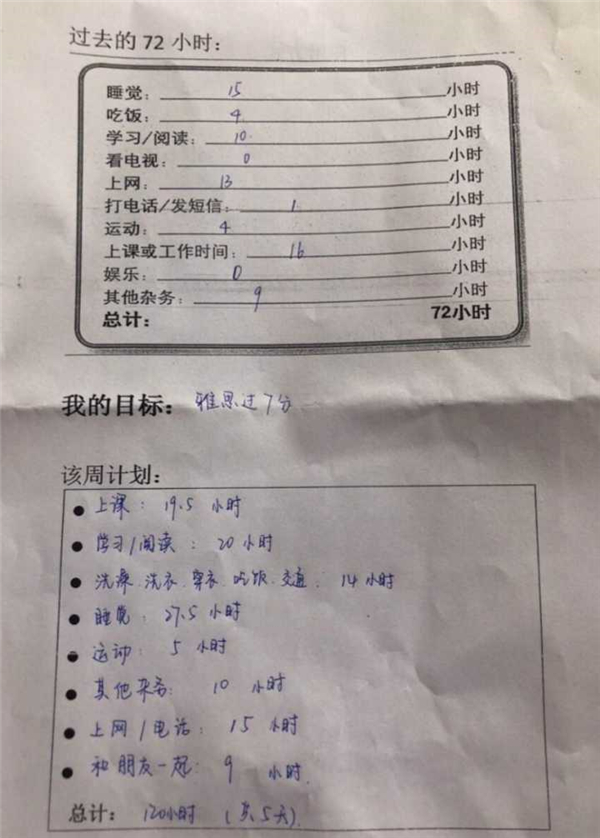 过去的 72 小时:
睡觉: 15 小时
吃饭: 4 小时
学习/阅读: 10 小时
看电视: 0 小时
上网: 13 小时
打电话/发短信: 1 小时
运动: 4 小时
上课或工作时间: 16 小时
娱乐: 0 小时
其他杂务: 9 小时
总计: 72小时
我的目标: 雅思过7分
该周计划:
上课: 19.5 小时
学习/阅读: 20 小时
洗澡、洗衣、穿衣、吃饭、交通: 14 小时
睡觉: 27.5 小时
运动: 5 小时
其他杂务: 10 小时
上网/电话: 15 小时
和朋友一起: 9 小时
总计: 120小时 (共5天)